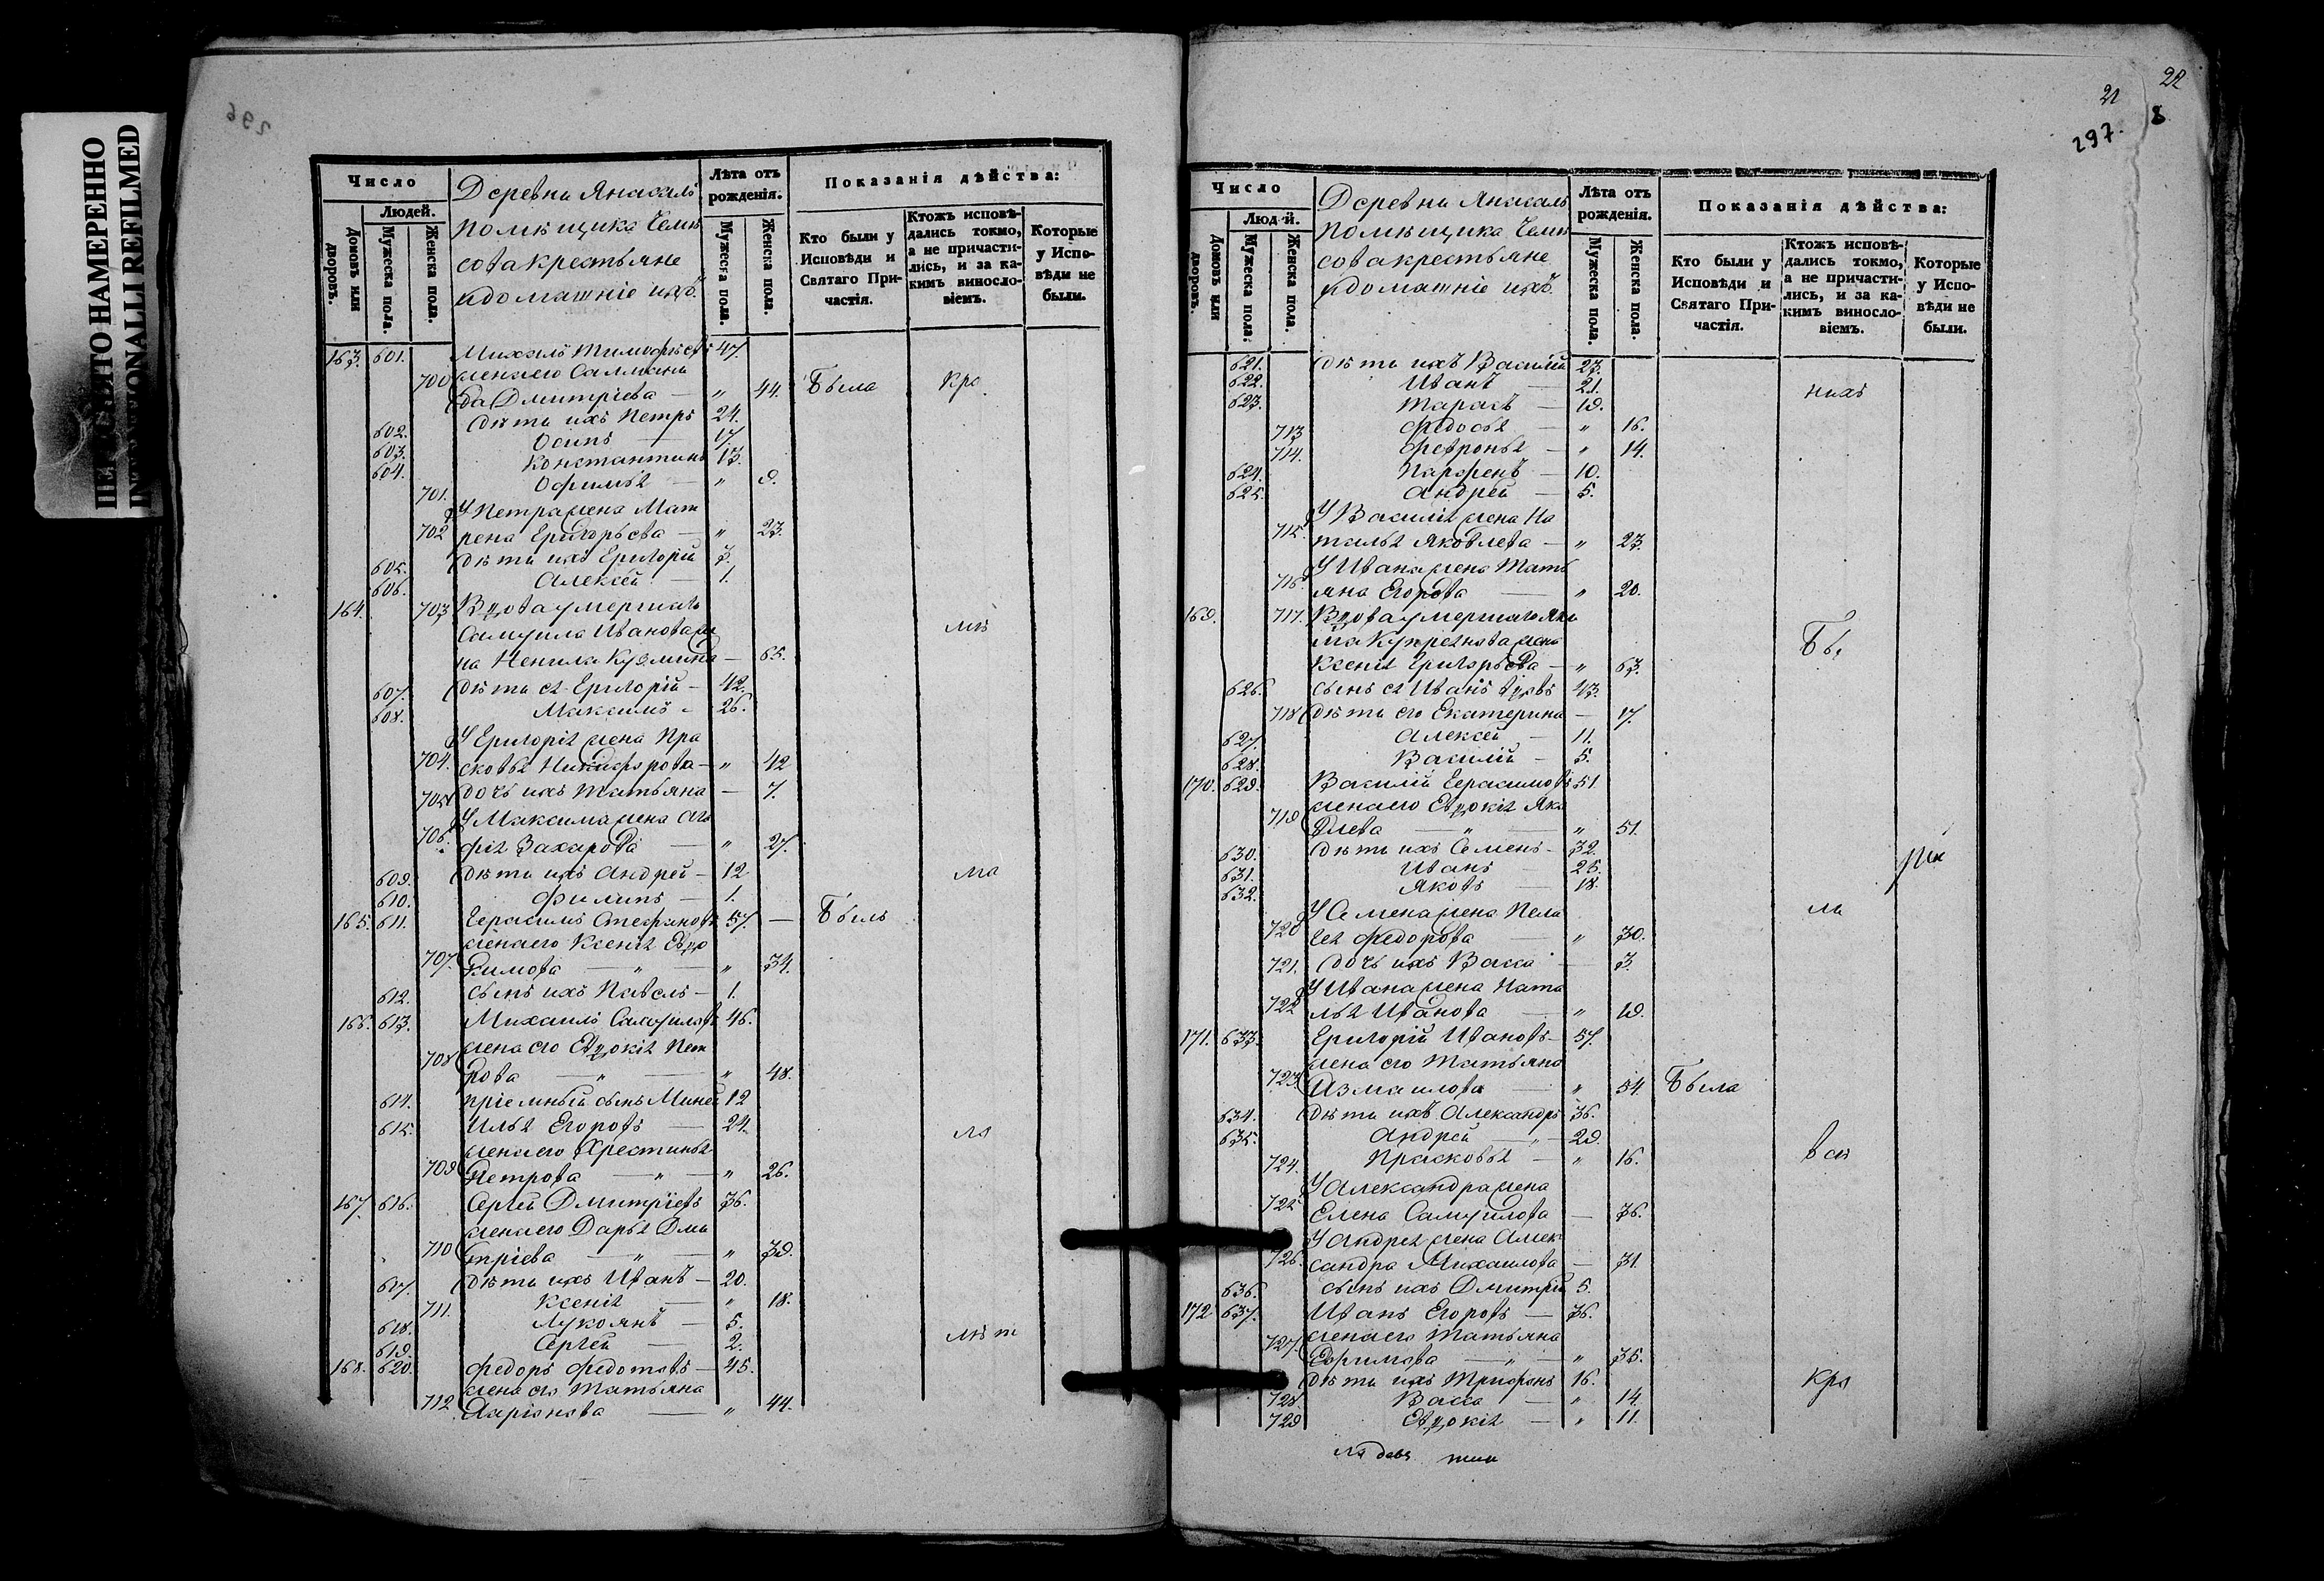 ПЕРЕСНЯТО НАМЕРЕННО
INTENTIONALLI REFILMED
296
Число
Людей.
Домовъ или дворовъ.
Мужеска пола.
Женска пола.
Деревни
помѣщика
сова крестьяне
и домашніе ихъ.
Лѣта отъ рожденія.
Мужеска пола.
Женска пола.
Показанія дѣйства:
Кто были у Исповѣди и Святаго Причастія.
Ктожъ исповѣдались токмо, а не причастились, и за какимъ винословіемъ.
Которые у Исповѣди не были.
163. 601. Михаилъ Тимофѣевъ 47.
жена его
700 да Дмитріева — " 44. Была кро
602. дѣти ихъ Петръ 24.
603. Осипъ — 17.
604. Константинъ 13.
701. Офимья — " 9.
У Петра жена Мат
702 рена Григорьева — " 23.
605. дѣти ихъ Григорій 3.
606. Алексей — 1.
164. 703 Вдова умершаго
Самуила Иванова же
на Ненила Кузмина — 65. мѣ
607. дѣти ея Григорій — 42.
608. Максимъ — 26.
У Григорія жена Пра
704. сковья Никифорова — " 42
705 дочь ихъ Татьяна — 7.
У Максима жена Ага
706. фія Захарова — " 27.
609. дѣти ихъ Андрей — 12 ма
610. Филипъ — 1.
165. 611. Герасимъ Стефановъ 57. — Былъ
жена его Ксенія Евдо
707. кимова — " — " 34.
612. сынъ ихъ Павелъ — 1.
166. 613. Михаилъ Самуиловъ 46.
жена его Евдокія Пет
708 рова — " — " 48.
614. пріемный сынъ Миней 12
615. Илья Егоровъ — 24.
жена его Хрестинья
709 Петрова — " — " 26.
167. 616. Сергей Дмитріевъ 36.
жена его Дарья Дми
710 тріева — " — " 39.
617. дѣти ихъ Иванъ — 20.
711. Ксенія — " 18.
618. Лукоянъ — 5.
619. Сергей — 2. лѣт
168. 620. Федоръ Федотовъ — 45.
жена его Татьяна
712 Ларіонова — " 44.
21 22
297.
8
Число
Людей.
Домовъ или дворовъ.
Мужеска пола.
Женска пола.
Деревни
помѣщика
сова крестьяне
и домашніе ихъ.
Лѣта отъ рожденія.
Мужеска пола.
Женска пола.
Показанія дѣйства:
Кто были у Исповѣди и Святаго Причастія.
Ктожъ исповѣдались токмо, а не причастились, и за какимъ винословіемъ.
Которые у Исповѣди не были.
621. дѣти ихъ Василій 27.
622. Иванъ — 21. нихъ
623. Тарасъ — 19.
713 Федосья — " 16.
714. Февронья — " 14.
624. Парфенъ — 10.
625. Андрей — 5.
У Василія жена На
715. талья Яковлева — " 23.
У Ивана жена Тать
716 яна Егорова — " 20.
169. 717. Вдова умершаго
жена Бы
Ксенія Григорьева — " 63.
626. сынъ ея Иванъ вдовъ 43.
718 дѣти его Екатерина — 17.
627. Алексей — 11.
628. Василій — 5.
170. 629. Василій Герасимовъ 51.
жена его Евдокія Яко
719 влева — " — " 51.
630. дѣти ихъ Семенъ — 32.
631. Иванъ — 25.
632. Яковъ — 18.
У Семена жена Пела
720 гея Федорова — " 30.
721. дочь ихъ Васса — 3.
У Ивана жена Ната
722 лья Иванова — " 19.
171. 633. Григорій Ивановъ — 57.
жена его Татьяна
723 Измаилова — " 54. Была
634. дѣти ихъ Александръ 36.
635. Андрей — " — 29.
724. Прасковья — " 16.
У Александра жена
725 Елена Самуилова — 36.
У Андрея жена Алек
726. сандра Михаилова — 31.
636. сынъ ихъ Дмитрій 5.
172. 637. Иванъ Егоровъ — 36.
жена его Татьяна
727. Ефимова — " — " 35.
дѣти ихъ Трифонъ 16. кро
728. Васса — " 14.
729 Евдокія — " 11.